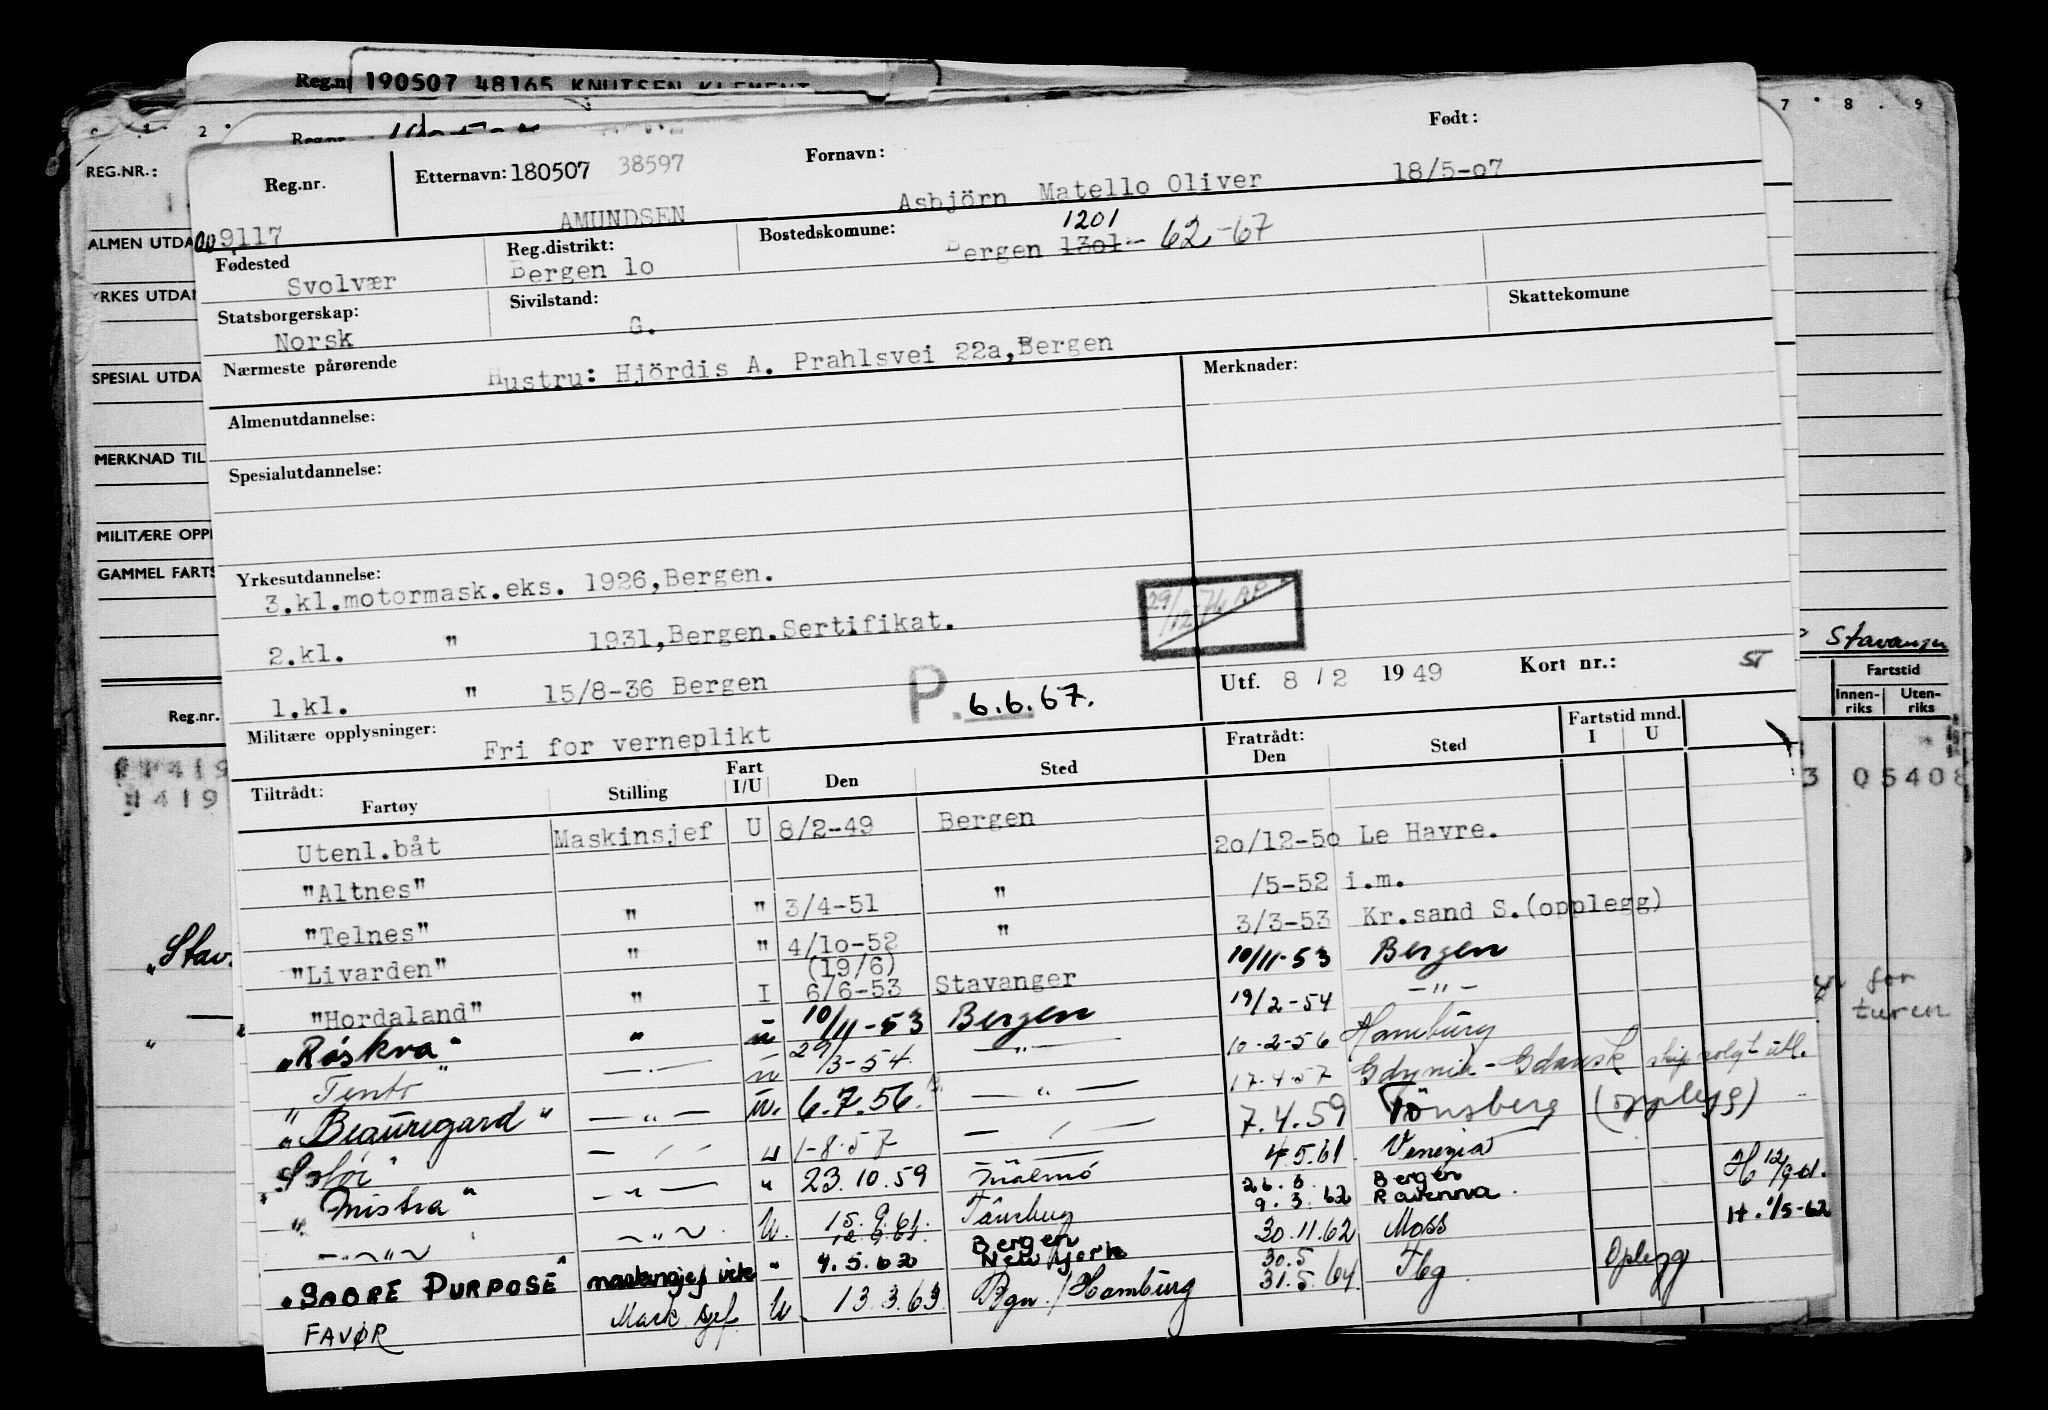 Reg.nr. 190507 48165 KNUTSEN KLEMENT
2 . 7 . 8 . 9
REG.NR.:
Reg.nr.
ALMEN UTDA
YRKES UTDA
SPESIAL UTDA
MERKNAD TIL
MILITÆRE OPPL
GAMMEL FARTS
Reg.nr.
"Stav
Stavanger
Fartstid
Innen-riks Uten-riks
3 05408
for
turen
Reg.nr. Etternavn: 180507 38597 Fornavn: Født:
009117 AMUNDSEN Asbjörn Matello Oliver 18/5-07
Fødested Reg.distrikt: Bostedskomune: 1201
Svolvær Bergen 10 Bergen 1301- 62-67
Statsborgerskap: Sivilstand: Skattekomune
Norsk G.
Nærmeste pårørende Hustru: Hjördis A. Prahlsvei 22a, Bergen
Merknader:
Almenutdannelse:
Spesialutdannelse:
Yrkesutdannelse:
3.kl.motormask.eks. 1926, Bergen.
2.kl. " 1931, Bergen. Sertifikat.
1.kl. " 15/8-36 Bergen
29/12-76 AP
P. 6.6.67.
Utf. 8 / 2 1949 Kort nr.:
Militære opplysninger: Fri for verneplikt
Tiltrådt: Fratrådt: Fartstid mnd.
Fartøy Stilling Fart I/U Den Sted Den Sted I U
Utenl.båt Maskinsjef U 8/2-49 Bergen 20/12-50 Le Havre.
"Altnes" " " 3/4-51 " /5-52 i.m.
"Telnes" " " 4/10-52 " 3/3-53 Kr.sand S.(opplegg)
"Livarden" " I (19/6) 6/6-53 Stavanger 10/11-53 Bergen
"Hordaland" " u 10/11-53 Bergen 19/2-54 - " -
"Røskva" - " - u 29/3-54 - " - 10-2-56 Hamburg
"Tento" - " - u. 6.7.56. - " - 17.4.57 Gdynia - Gdansk skip solgt utl.
"Beauregard" - " - u 1-8-57 - " - 7.4.59 Tönsberg (opplegg)
"Solør" - " - " 23.10.59 Malmö 4.5.61 Venezia
"Mistra" - " - U. 15.9.61. Tönsberg 26.8 Bergen H 12/9-61.
12.9.61. Bergen 9.3.62 Ravenna. H. 1/5-62
- " - " 4.5.62 New York 30.11.62 Moss
"SABRE PURPOSE" maskinsjef vik
FAVØR Mask. sjef U 13.3.63 Bgn. / Hamburg 30.5 31.5.64 Tbg Oplegg